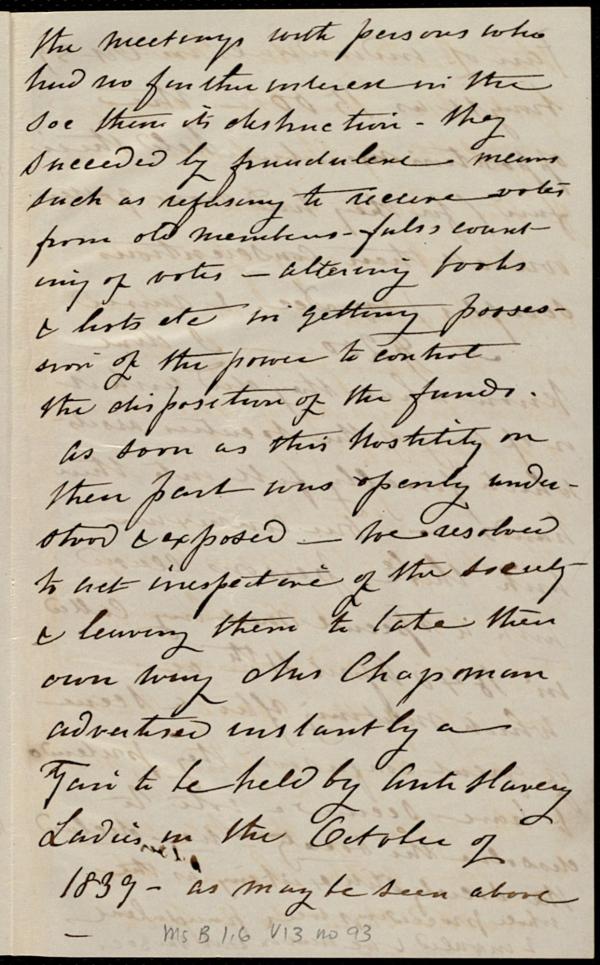 the meetings with persons who
had no further interest in the
soc than its destruction - they
succeeded by fraudulent means
such as refusing to receive votes
from old members - false count-
ing of votes - altering books
& lists etc in getting posses-
sion of the power to control
the disposition of the funds.
As soon as this hostility on
their part was openly under-
stood & exposed - we resolved
to act irrespective of the society
& leaving them to take their
own way Mrs Chapman
advertised instantly a
Fair to be held by Anti Slavery
Ladies in the October of
1839 - as may be seen above
—
Ms B 1.6 V13 no 93